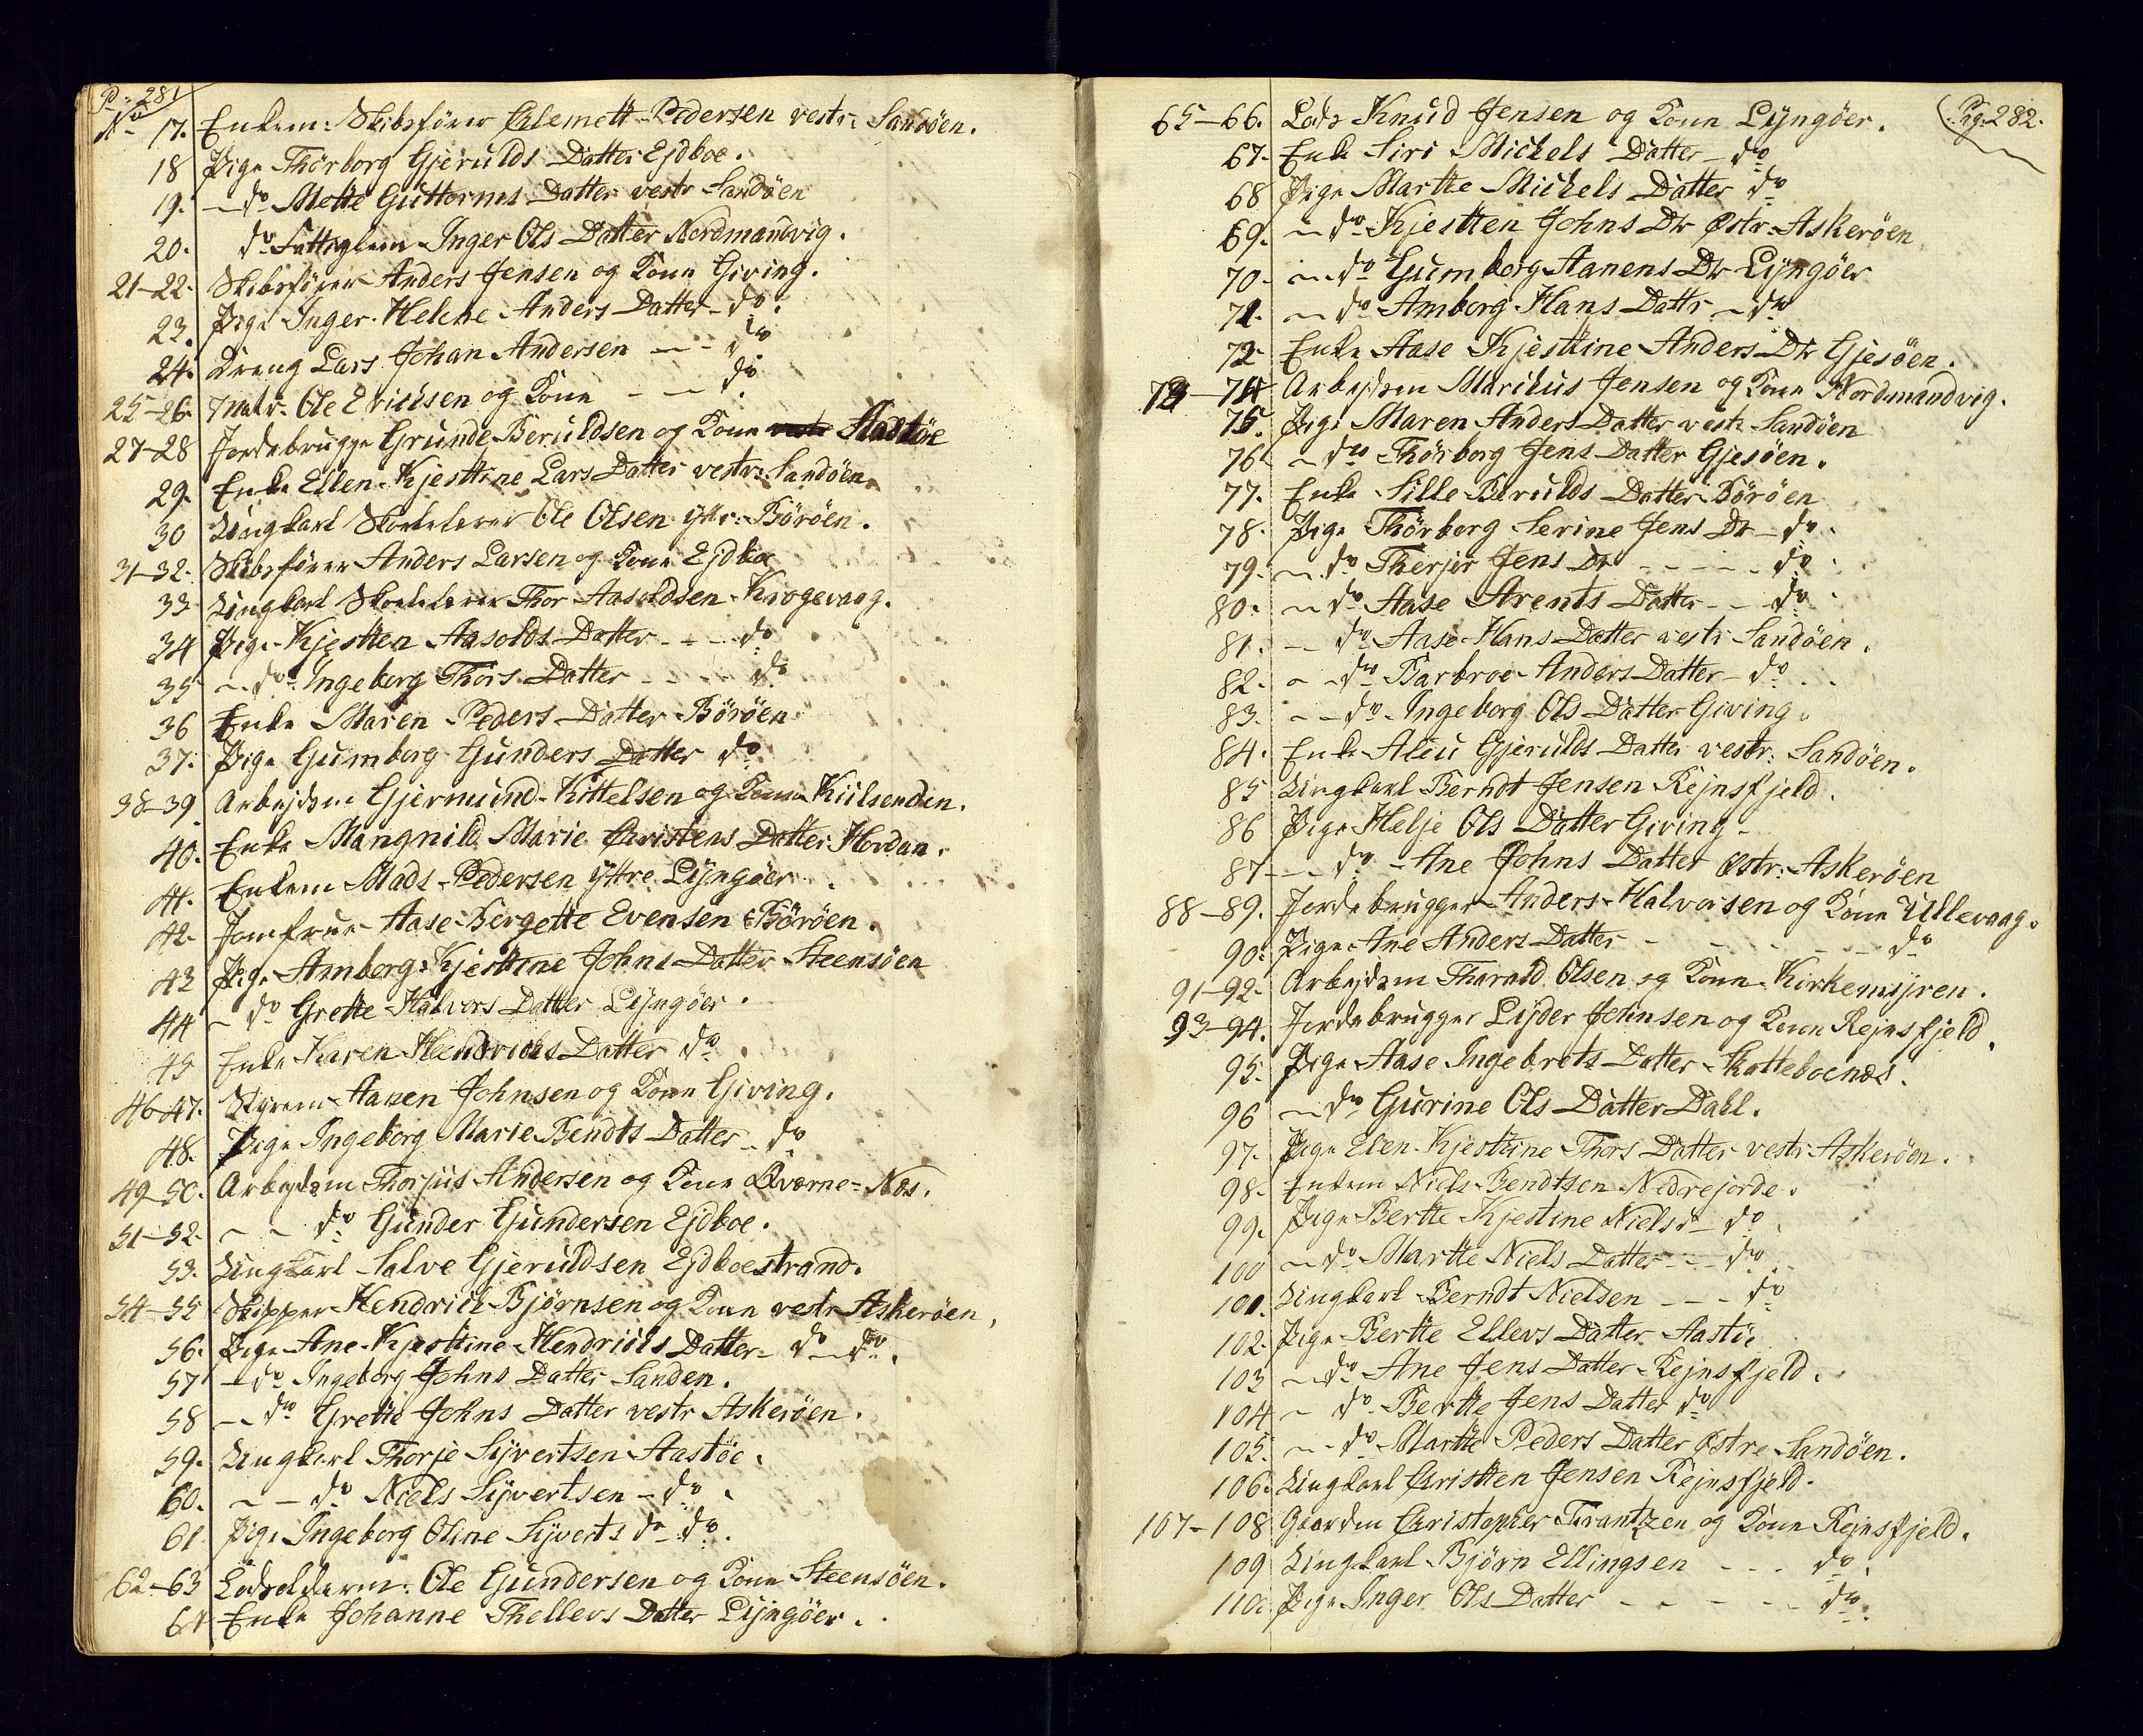 P: 281
No 17. Enkem: Skibsfører Clemett Pedersen vestr: Sandöen.
18 Pige Thörborg Gjerulds Datter Ejdboe.
19. — do Mette Guttorms Datter vestr Sandöen
20. do Fattiglem Inger Ols Datter Nordmandvig.
21-22. Skibsfører Anders Jensen og Kone Giving.
23. Pige Inger Helene Anders Datter - do.
24. Dreng Lars Johan Andersen — - do
25-26. Matr. Ole Erichsen og Kone - — do
27-28 Jordebrugge Grunde Beruldsen og Kone vestr Aastöe
29. Enke Ellen Kjesttine Lars Datter vestr: Sandöen.
30 Ungkarl Skoelelerer Ole Olsen yttr: Böröen.
31-32. Skibsfører Anders Larsen og Kone Ejdboe
33 Ungkarl Skoelelerer Thor Aasoldsen Krogevaag.
34 Pige Kjestten Aasolds Datter - - - do
35 — do Ingeborg Thors Datter - - - do
36 Enke Maren Peders Datter Böröen
37. Pige Gumborg Gunders Datter do
38-39. Arbejdsm Gjermund Kittelsen og Kone Kiilsenden.
40. Enke Mangnild Marie Christens Datter Hordan.
41. Enkem Mads Pedersen yttre Lyngöer.
42. Jomfrue Aase Bergette Evensen Böröen.
43 Pige Amborg Kjesttine Johns Datter Steensöen
44 — do Grette Halvors Datter Lyngöer.
45 Enke Karen Hendrichs Datter do.
46-47. Styrem Aanen Johnsen og Kone Giving.
48. Pige Ingeborg Marie Bendts Datter - do
49-50. Arbejdsm Thorjus Andersen og Kone Qværne=Næs.
51-52. — - do Gunder Gundersen Ejdboe.
53. Ungkarl Salve Gjeruldsen Ejdboestrand.
54-55 Skipper Hendrich Björnsen og Kone vestr Askeröen,
56. Pige Ane Kjesttine Hendrichs Datter - do - do.
57 - do Ingeborg Johns Datter Sanden.
58 — do Grette Johns Datter vestr Askeröen.
59. Ungkarl Thorje Syvertsen Aastöe.
60. — - do Niels Syvertsen - do.
61 Pige Ingeborg Oline Syverts dr do.
62-63 Lodsolderm: Ole Gundersen og Kone Steensöen.
64 Enke Johanne Thellevs Datter Lyngöer.
Pag: 282.
65-66. Lods Knud Jensen og Kone Lyngöer.
67. Enke Siri Michels Datter - do
68 Pige Martte Michels Datter do
69. — do Kjestten Johns Dtr østr. Askeröen
70. — do Gumborg Aanens Dtr Lyngöer
71. — do Amborg Hans Dattr - do
72. Enke Aase Kjesttine Anders Dtr Gjesöen.
73-74 Arbejdsm Marikus Jensen og Kone Nordmandvig.
75. Pige Maren Anders Datter vestr Sandöen
76. — do Thörborg Jens Datter Gjesöen.
77. Enke Sille Berulds Datter Böröen
78. Pige Thörborg Serine Jens Dr - do.
79. — do Therjer Jens Dtr - - - - do
80. — do Aase Arents Datter - - do
81. — do Aase Hans Datter vestr Sandöen.
82. - - do Barbroe Anders Datter - do.
83. - - do Ingeborg Ols Datter Giving.
84. Enke Aleu Gjerulds Datter vestr: Sandöen.
85 Ungkarl Berndt Jensen Rejnsfjeld.
86 Pige Helje Ols Datter Giving.
87 — - do Ane Johns Datter østr: Askeröen
88-89. Jordebrugger Anders Halvorsen og Kone Ullevaag.
90. Pige Ane Anders Datter - - - - - do
91-92. Arbejdsm Tharald Olsen og Kone Kirkemyren.
93-94. Jordebrugger Lyder Johnsen og Kone Rejnsfjeld.
95. Pige Aase Ingebrets Datter Skatteboenæs.
96 — do Gurine Ols Datter Dahl.
97. Pige Elen Kjesttine Thors Datter vestr Askeröen.
98. Enkem Niels Bendtsen Nedrejorde.
99. Pige Bertte Kjestine Niels dr do
100 — do Martte Niels Datter - - do
101. Ungkarl Berndt Nielsen - - - do
102. Pige Bertte Ellevs Datter Aastöe
103 — do Ane Jens Datter Rejnsfjeld.
104 — do Bertte Jens Datter do
105. — - do Martte Peders Datter østre Sandöen.
106. Ungkarl Christten Jensen Rejnsfjeld.
107-108 Gaardm Christopher Frantzen og Kone Rejnsfjeld.
109 Ungkarl Björn Ellingsen - - - do.
110. Pige Inger Ols Datter - - - - - do.